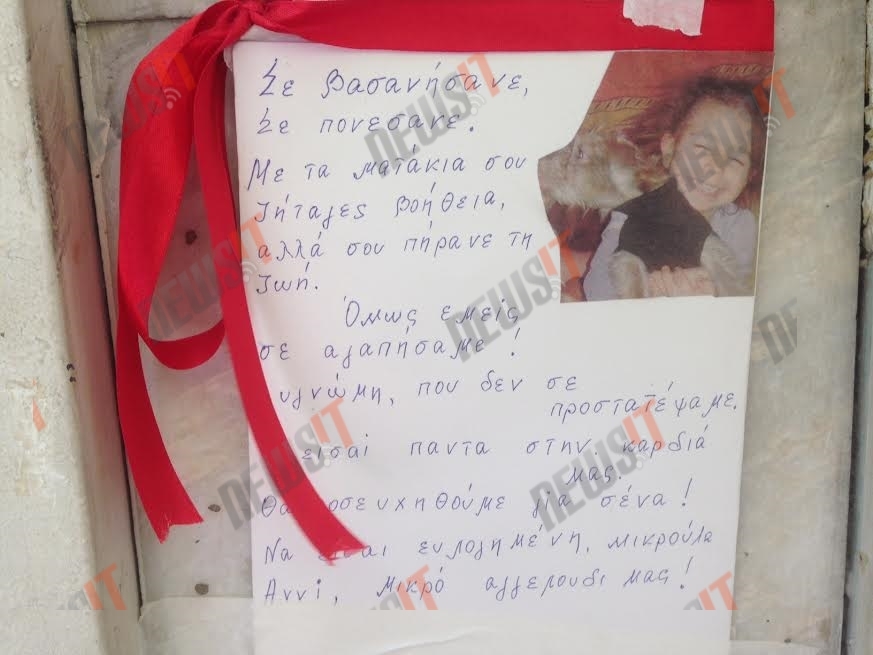 Σε βασανήσανε,
Σε πονεσανε.
Με τα ματάκια σου
ζήταγες βοήθεια,
αλλά σου πήρανε τη
ζωή.
Όμως εμείς
σε αγαπήσαμε!
υγνώμη, που δεν σε
προστατέψαμε.
εισαι παντα στην καρδιά
μας.
Θα οσευχηθούμε για σένα!
Να είσαι ευλογημένη, μικρούλα
Αννι, μικρό αγγελουδι μας!
NEWSIT